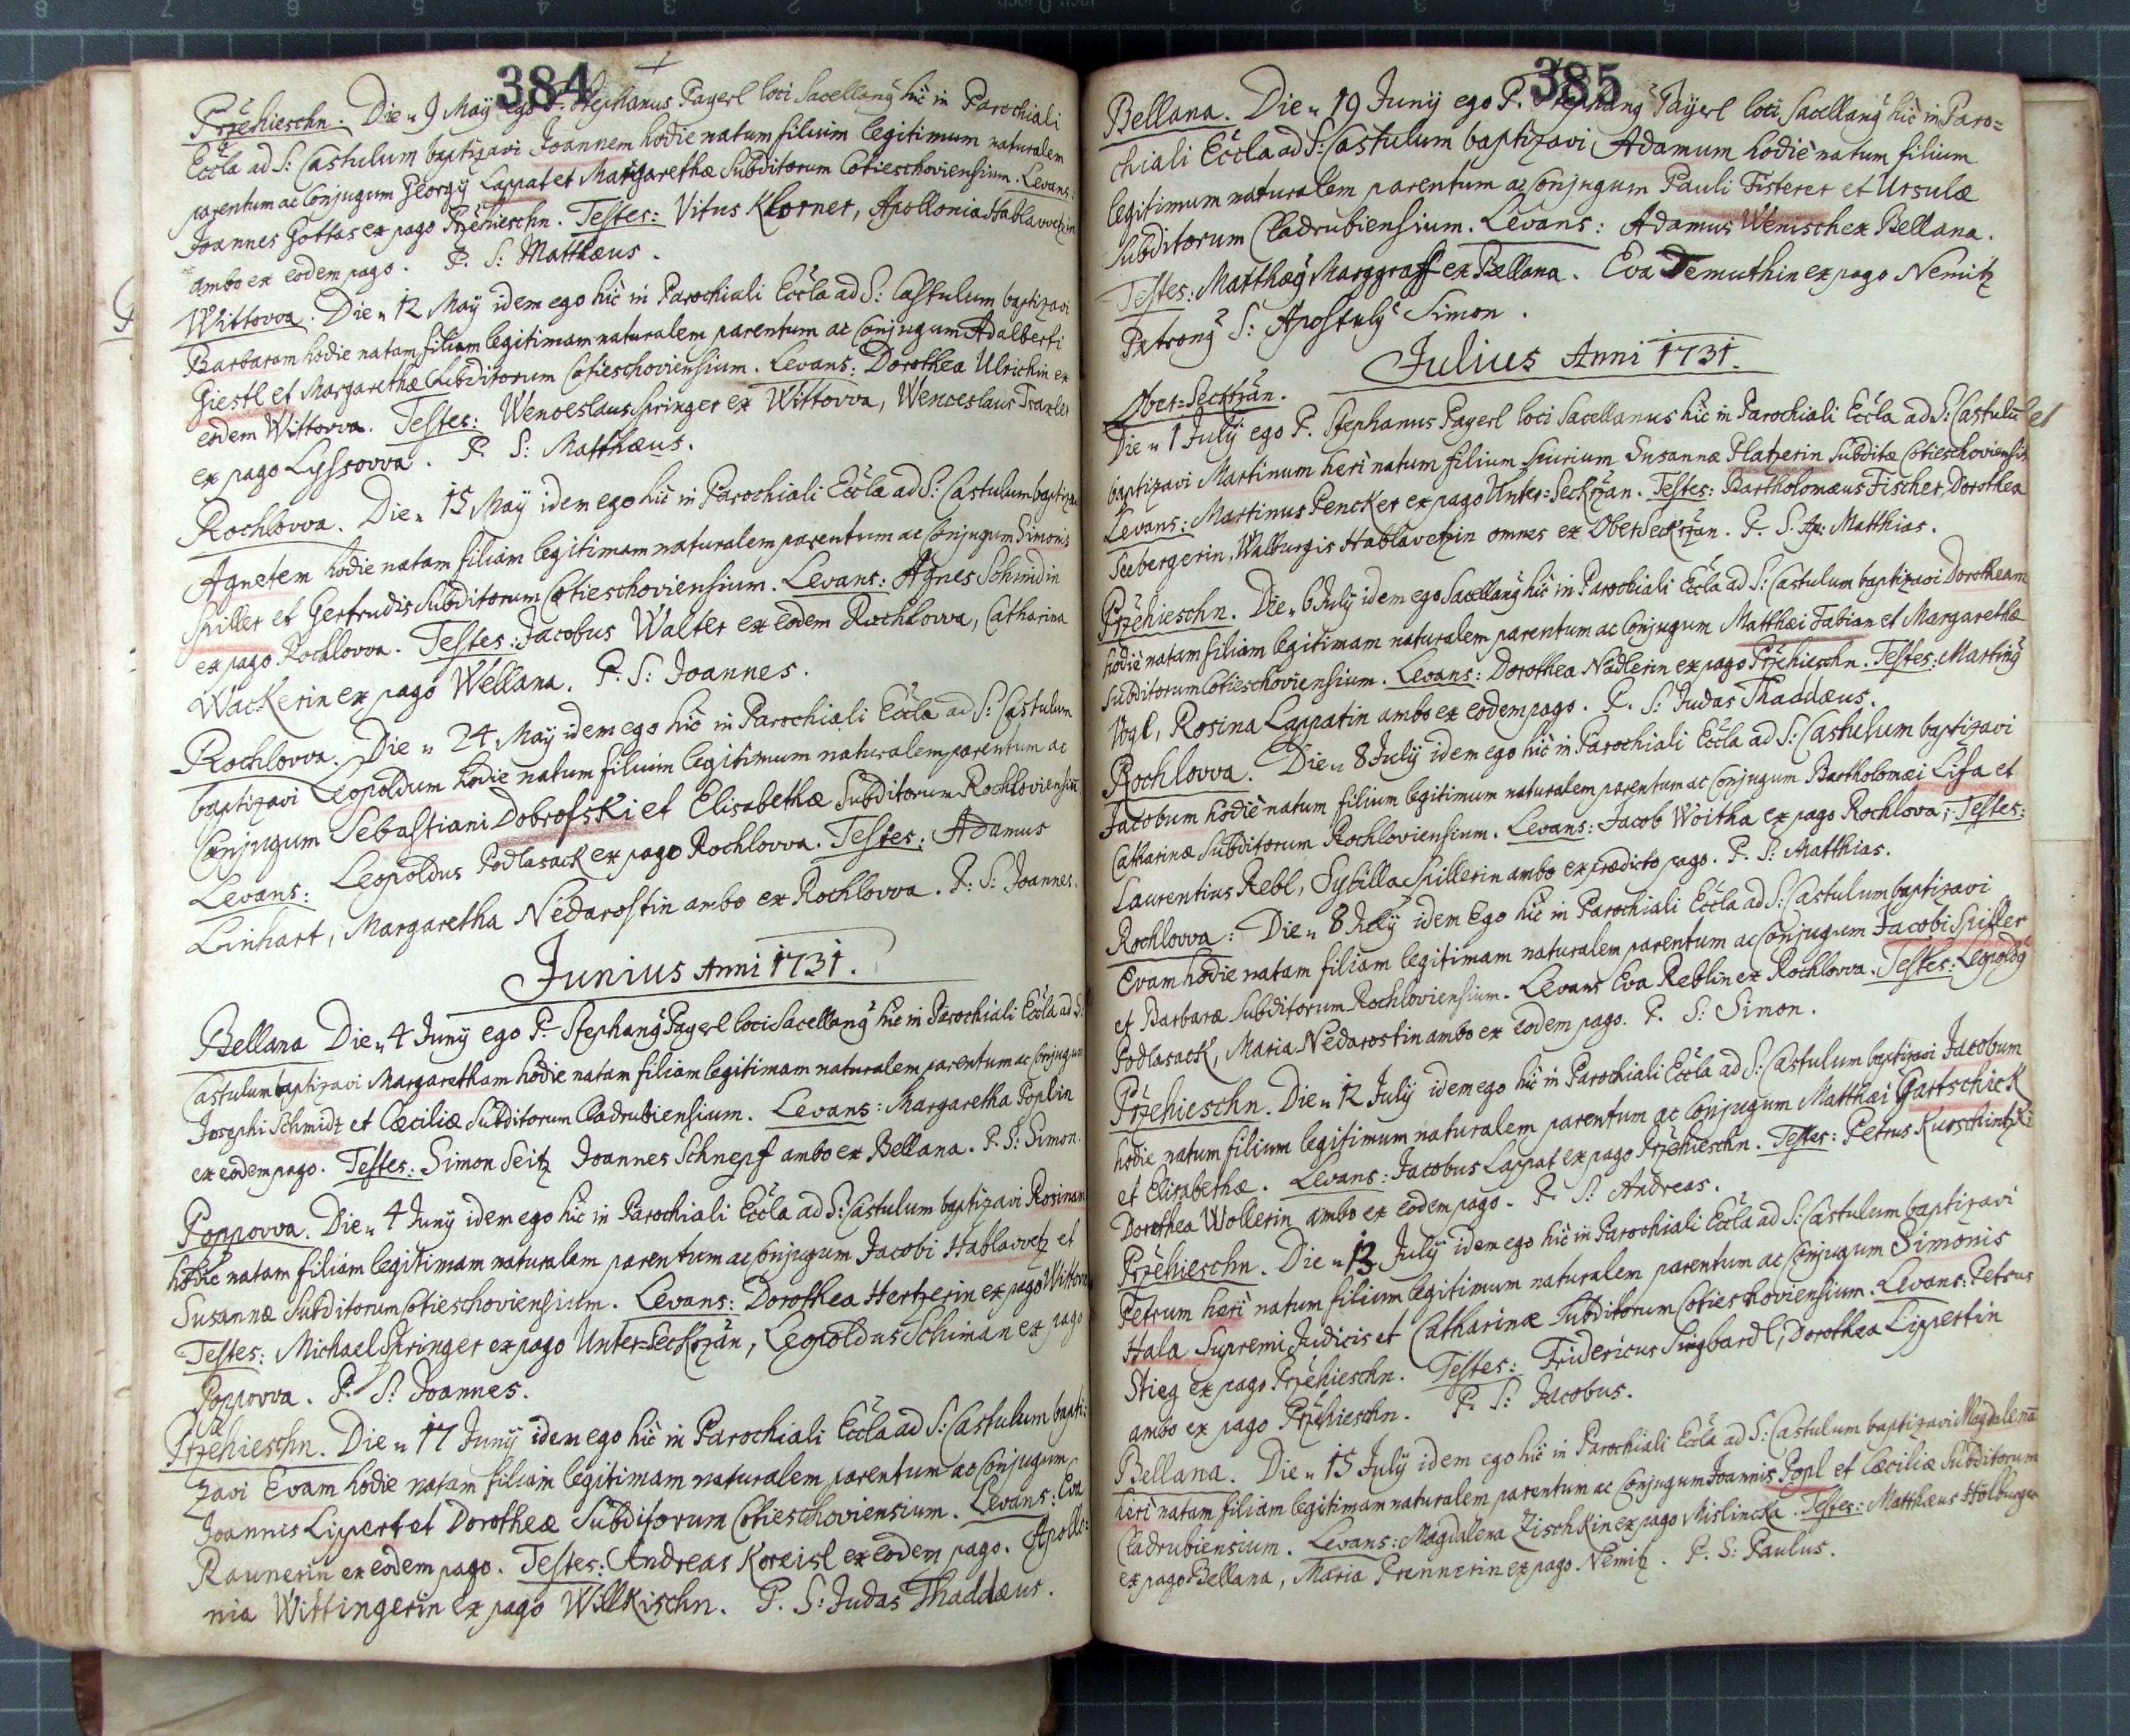 384
Przehieschn. Die 9 Maÿ ego P. Stephanus Payerl loci Sacellanꝰ hic in Parochiali
Eccla ad S: Castulum baptizavi Joannem hodie natum filium legitimum naturalem
parentum ac Conjugum Georgÿ Lappat et Margarethæ Subditorum Cotieschoviensium. Levans:
Joannes Gottas ex pago Przehieschn. Testes: Vitus Klorner, Apollonia Hablavvetzin
ambo ex eodem pago. P. S: Matthæus.
Wittovva. Die 12 Maÿ idem ego hic in Parochiali Eccla ad S: Castulum baptizavi
Barbaram hodie natam filiam legitimam naturalem parentum ac Conjugum Adalberti
Giestl et Margarethæ Subditorum Cotieschoviensium. Levans: Dorothea Ulrichin ex
eodem Wittovva. Testes: Wenceslaus Springer ex Wittovva, Wenceslaus
ex pago Lyssovva. P. S: Matthæus.
Rochlovva. Die 15 Maÿ idem ego hic in Parochiali Eccla ad S: Castulum baptizavi
Agnetem hodie natam filiam legitimam naturalem parentum ac Conjugum Simonis
Spiller et Gertrudis Subditorum Cotieschoviensium. Levans: Agnes Schmidin
ex pago Rochlovva. Testes: Jacobus Walter ex eodem Rochlovva, Catharina
Wackerin ex pago Wellana. P. S: Joannes.
Rochlovva. Die 24 Maÿ idem ego hic in Parochiali Eccla ad S: Castulum
baptizavi Leopoldum hodie natum filium legitimum naturalem parentum ac
Conjugum Sebastiani Dobrofski et Elisabethæ Subditorum Rochloviensiū.
Levans: Leopoldus Podlasack ex pago Rochlovva. Testes: Adamus
Linhart, Margaretha Nedarostin ambo ex Rochlovva. P: S: Joannes.
Junius Anni 1731.
Bellana Die 4 Junÿ ego P. Stephanꝰ Payerl loci Sacellanꝰ hic in Parochiali Eccla ad S:
Castulum baptizavi Margaretham hodie natam filiam legitimam naturalem parentum ac Conjugum
Josephi Schmidt et Cæciliæ Subditorum Cladrubiensium. Levans: Margaretha Poplin
ex eodem pago. Testes: Simon Seitz Joannes Schnepf ambo ex Bellana. P. S: Simon.
Poppovva. Die 4 Junÿ idem ego hic in Parochiali Eccla ad S: Castulum baptizavi Rosinam
hodie natam filiam legitimam naturalem parentum ac Conjugum Jacobi Hablavvetz et
Susannæ Subditorum Cotieschoviensium. Levans: Dorothea Hertzerin ex pago Wittovva
Testes: Michael Springer ex pago Unter-Seckrzan, Leopoldus Schiman ex pago
Poppovva. P. S: Joannes.
Przehieschn. Die 17 Junÿ idem ego hic in Parochiali Eccla ad S: Castulum bapti:
zavi Evam hodie natam filiam legitimam naturalem parentum ac Conjugum
Joannis Lippert et Dorotheæ Subditorum Cotieschoviensium. Levans: Eva
Raunerin ex eodem pago. Testes: Andreas Koreisl ex eodem pago. Apollo:
nia Wittingerin ex pago Willkischn. P. S: Judas Thaddæus.
385
Bellana. Die 19 Junÿ ego P. Stephanꝰ Payerl loci Sacellanꝰ hic in Paro=
chiali Eccla ad S: Castulum baptizavi Adamum hodie natum filium
legitimum naturalem parentum ac Conjugum Pauli Fisterer et Ursulæ
Subditorum Cladrubiensium. Levans: Adamus Wenisch ex Bellana.
Testes: Matthæꝰ Marggraff ex Bellana. Eva Demuthin ex pago Nemitz
Patronꝰ S: Apostulꝰ Simon.
Julius Anni 1731.
Ober=Seckrzan.
Die 1 Julÿ ego P. Stephanus Payerl loci Sacellanus hic in Parochiali Eccla ad S: Castulū
baptizavi Martinum heri natum filium spurium Susannæ Platzerin Subditæ Cotieschoviensis
Levans: Martinus Pencker ex pago Unter=Seckrzan. Testes: Bartholomæus Fischer, Dorothea
Seebergerin, Walburgis Hablavetzin omnes ex Ober Seckrzan. P. S. Ap: Matthias.
Przehieschn. Die 6 Julÿ idem ego Sacellanꝰ hic in Parochiali Eccla ad S: Castulum baptizavi Dorotheam
hodie natam filiam legitimam naturalem parentum ac Conjugum Matthæi Fabian et Margarethæ
Subditorum Cotieschoviensium. Levans: Dorothea Nadlerin ex pago Przehieschn. Testes: Martinꝰ
Vogl, Rosina Lappatin ambo ex eodem pago. P. S: Judas Thaddæus.
Rochlovva. Die 8 Julÿ idem ego hic in Parochiali Eccla ad S: Castulum baptizavi
Jacobum hodie natum filium legitimum naturalem parentum ac Conjugum Bartholomæi Lisa et
Catharinæ Subditorum Rochloviensium. Levans: Jacob Woitha ex pago Rochlova; Testes:
Laurentius Rebl, Sybilla Spillerin ambo ex prædicto pago. P. S: Matthias.
Rochlovva: Die 8 Julÿ idem Ego hic in Parochiali Eccla ad S: Castulum baptizavi
Evam hodie natam filiam legitimam naturalem parentum ac Conjugum Jacobi Spiller
et Barbaræ Subditorum Rochloviensium. Levans Eva Reblin ex Rochlovva. Testes: Leopoldꝰ
Podlasack, Maria Nedarostin ambo ex eodem pago. P. S: Simon.
Przehieschn. Die 12 Julÿ idem ego hic in Parochiali Eccla ad S: Castulum baptizavi Jacobum
hodie natum filium legitimum naturalem parentum ac Conjugum Matthæi Gartschick
et Elisabethæ. Levans: Jacobus Lappat ex pago Przehieschn. Testes: Petrus Kurschintzki
Dorothea Wollerin ambo ex eodem pago. P. S: Andreas.
Przehieschn. Die 13 Julÿ idem ego hic in Parochiali Eccla ad S: Castulum baptizavi
Petrum heri natum filium legitimum naturalem parentum ac Conjugum Simonis
Hala Supremi Judicis et Catharinæ Subditorum Cotieschoviensium. Levans: Petrus
Stieg ex pago Przehieschn. Testes: Fridericus Singbardl, Dorothea Lippertin
ambo ex pago Przehieschn. P. S: Jacobus.
Bellana. Die 15 Julÿ idem ego hic in Parochiali Eccla ad S: Castulum baptizavi Magdalenā
heri natam filiam legitimam naturalem parentum ac Conjugum Joannis Popl et Cæciliæ Subditorum
Cladrubiensium. Levans: Magdalena Zischkin ex pago Mislincka. Testes: Matthæus Hölburger
ex pago Bellana, Maria Prennerin ex pago Nemitz. P. S: Paulus.